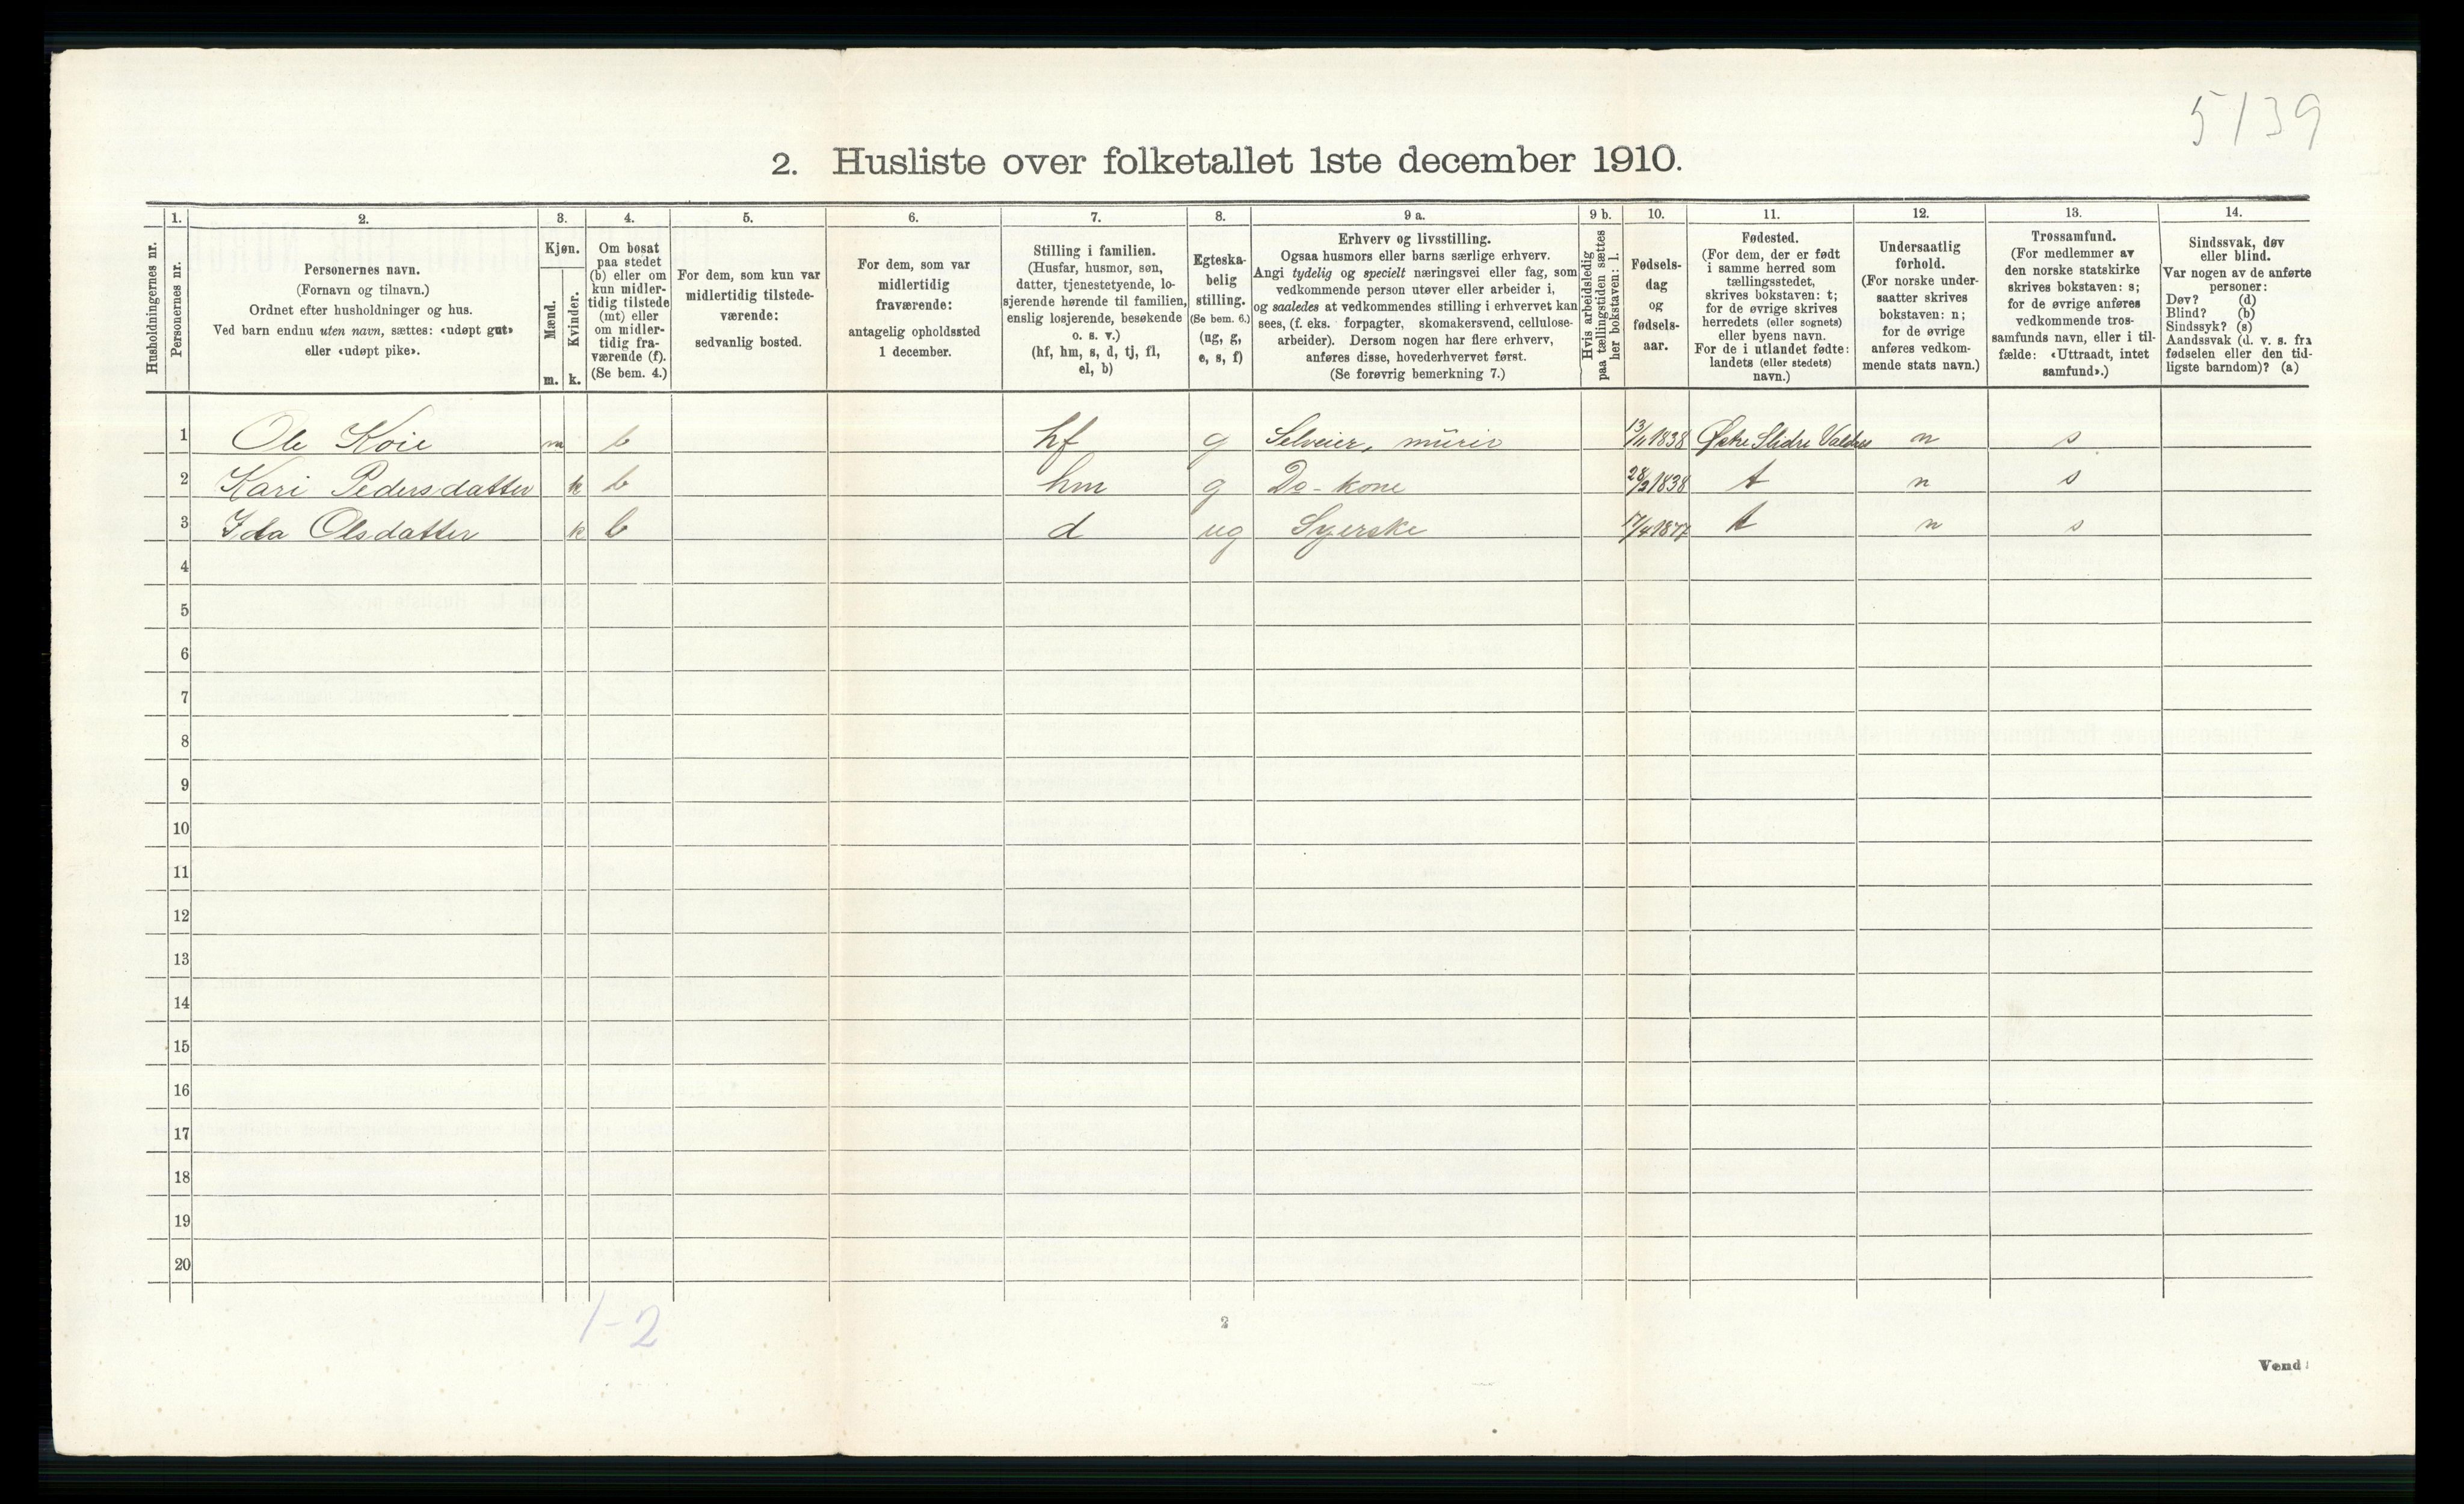 5139
2. Husliste over folketallet 1ste december 1910.
Husholdningernes nr.
1.
Personernes nr.
2.
Personernes navn.
(Fornavn og tilnavn.)
Ordnet efter husholdninger og hus.
Ved barn endnu uten navn, sættes: «udøpt gut»
eller «udøpt pike».
3.
Kjøn.
Mænd.
Kvinder.
m. k.
4.
Om bosat
paa stedet
(b) eller om
kun midler-
tidig tilstede
(mt) eller
om midler-
tidig fra-
værende (f).
(Se bem. 4.)
5.
For dem, som kun var
midlertidig tilstede-
værende:
sedvanlig bosted.
6.
For dem, som var
midlertidig
fraværende:
antagelig opholdssted
1 december.
7.
Stilling i familien.
(Husfar, husmor, søn,
datter, tjenestetyende, lo-
sjerende hørende til familien,
enslig losjerende, besøkende
o. s. v.)
(hf, hm, s, d, tj, fl,
el, b)
8.
Egteska-
belig
stilling.
(Se bem. 6.)
(ug, g,
e, s, f)
9 a.
Erhverv og livsstilling.
Ogsaa husmors eller barns særlige erhverv.
Angi tydelig og specielt næringsvei eller fag, som
vedkommende person utøver eller arbeider i,
og saaledes at vedkommendes stilling i erhvervet kan
sees, (f. eks. forpagter, skomakersvend, cellulose-
arbeider). Dersom nogen har flere erhverv,
anføres disse, hovederhvervet først.
(Se forøvrig bemerkning 7.)
9 b.
Hvis arbeidsledig
paa tællingstiden sættes
her bokstaven: l.
10.
Fødsels-
dag
og
fødsels-
aar.
11.
Fødested.
(For dem, der er født
i samme herred som
tællingsstedet,
skrives bokstaven: t;
for de øvrige skrives
herredets (eller sognets)
eller byens navn.
For de i utlandet fødte:
landets (eller stedets)
navn.)
12.
Undersaatlig
forhold.
(For norske under-
saatter skrives
bokstaven: n;
for de øvrige
anføres vedkom-
mende stats navn.)
13.
Trossamfund.
(For medlemmer av
den norske statskirke
skrives bokstaven: s;
for de øvrige anføres
vedkommende tros-
samfunds navn, eller i til-
fælde: «Uttraadt, intet
samfund».)
14.
Sindssvak, døv
eller blind.
Var nogen av de anførte
personer:
Døv? (d)
Blind? (b)
Sindssyk? (s)
Aandssvak (d. v. s. fra
fødselen eller den tid-
ligste barndom)? (a)
1 Ole Koie m b hf g Selveier, mürer 13/11 1838 Østre Slidre Valdres n s
2 Kari Pedersdatter k b hm g Do - kone 1838 t n s
3 Ida Olsdatter k b d ug Syerske 17/4 1877 t n s
4
5
6
7
8
9
10
11
12
13
14
15
16
17
18
19
20
1-2
2
Vend